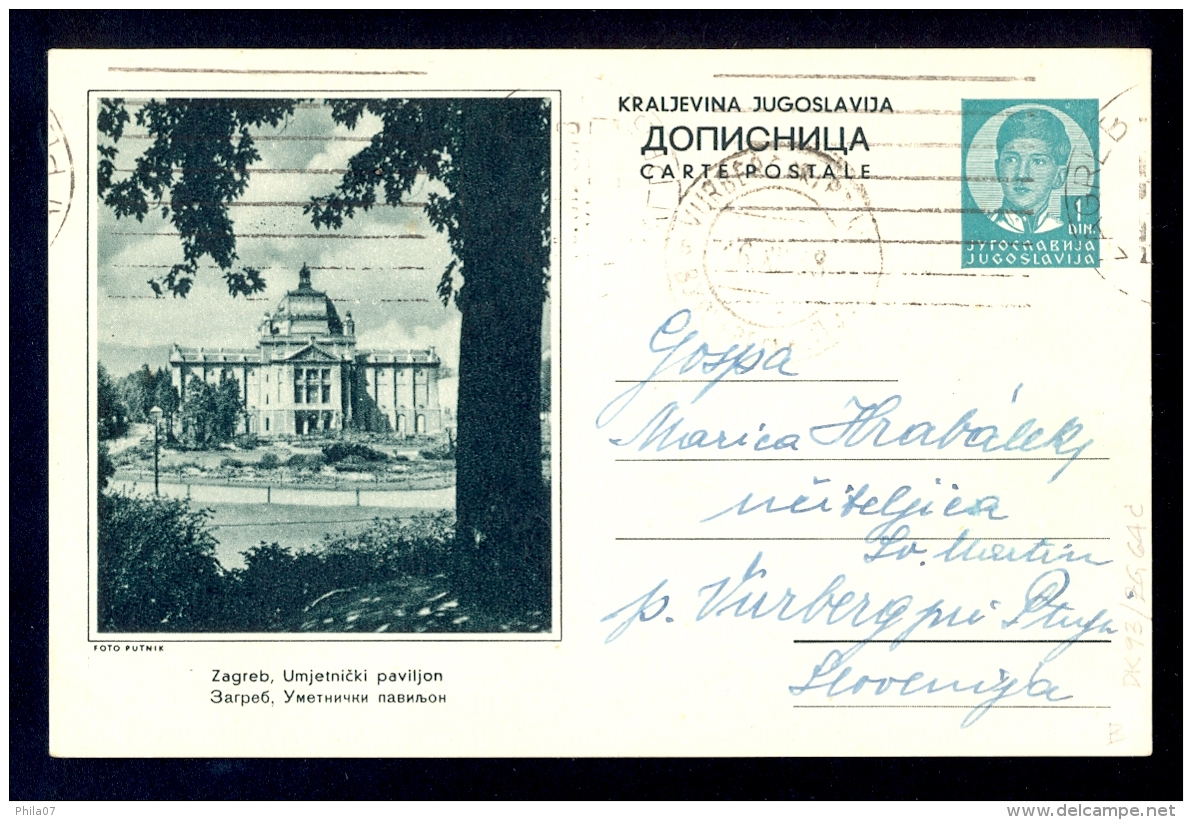 KRALJEVINA JUGOSLAVIJA
ДОПИСНИЦА
CARTE POSTALE
1
DIN.
ЈУГОСЛАВИЈА
JUGOSLAVIJA
ZAGREB
Gospa
Marica Hrabálek
učiteljica
Sv. Martin
p. Vurberg pri Ptuju
Slovenija
FOTO PUTNIK
Zagreb, Umjetnički paviljon
Загреб, Уметнички павиљон
DK93/BG64c
Phila07
www.delcampe.net